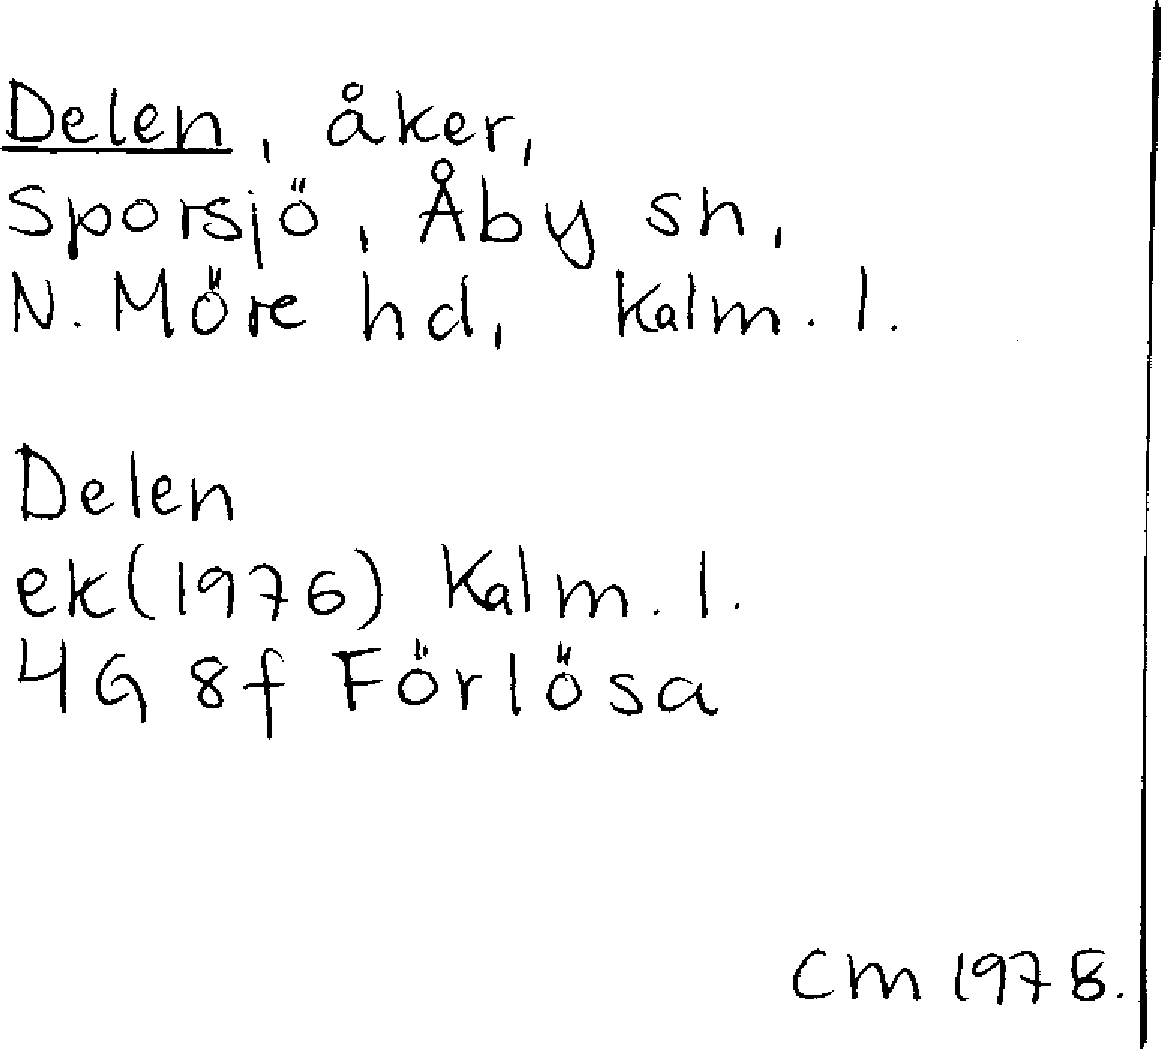 Delen, åker,
Sporsjö, Åby sn,
N. Möre hd, Kalm. l.
Delen
ek(1976) Kalm. l.
4G 8f Förlösa
CM 1978.